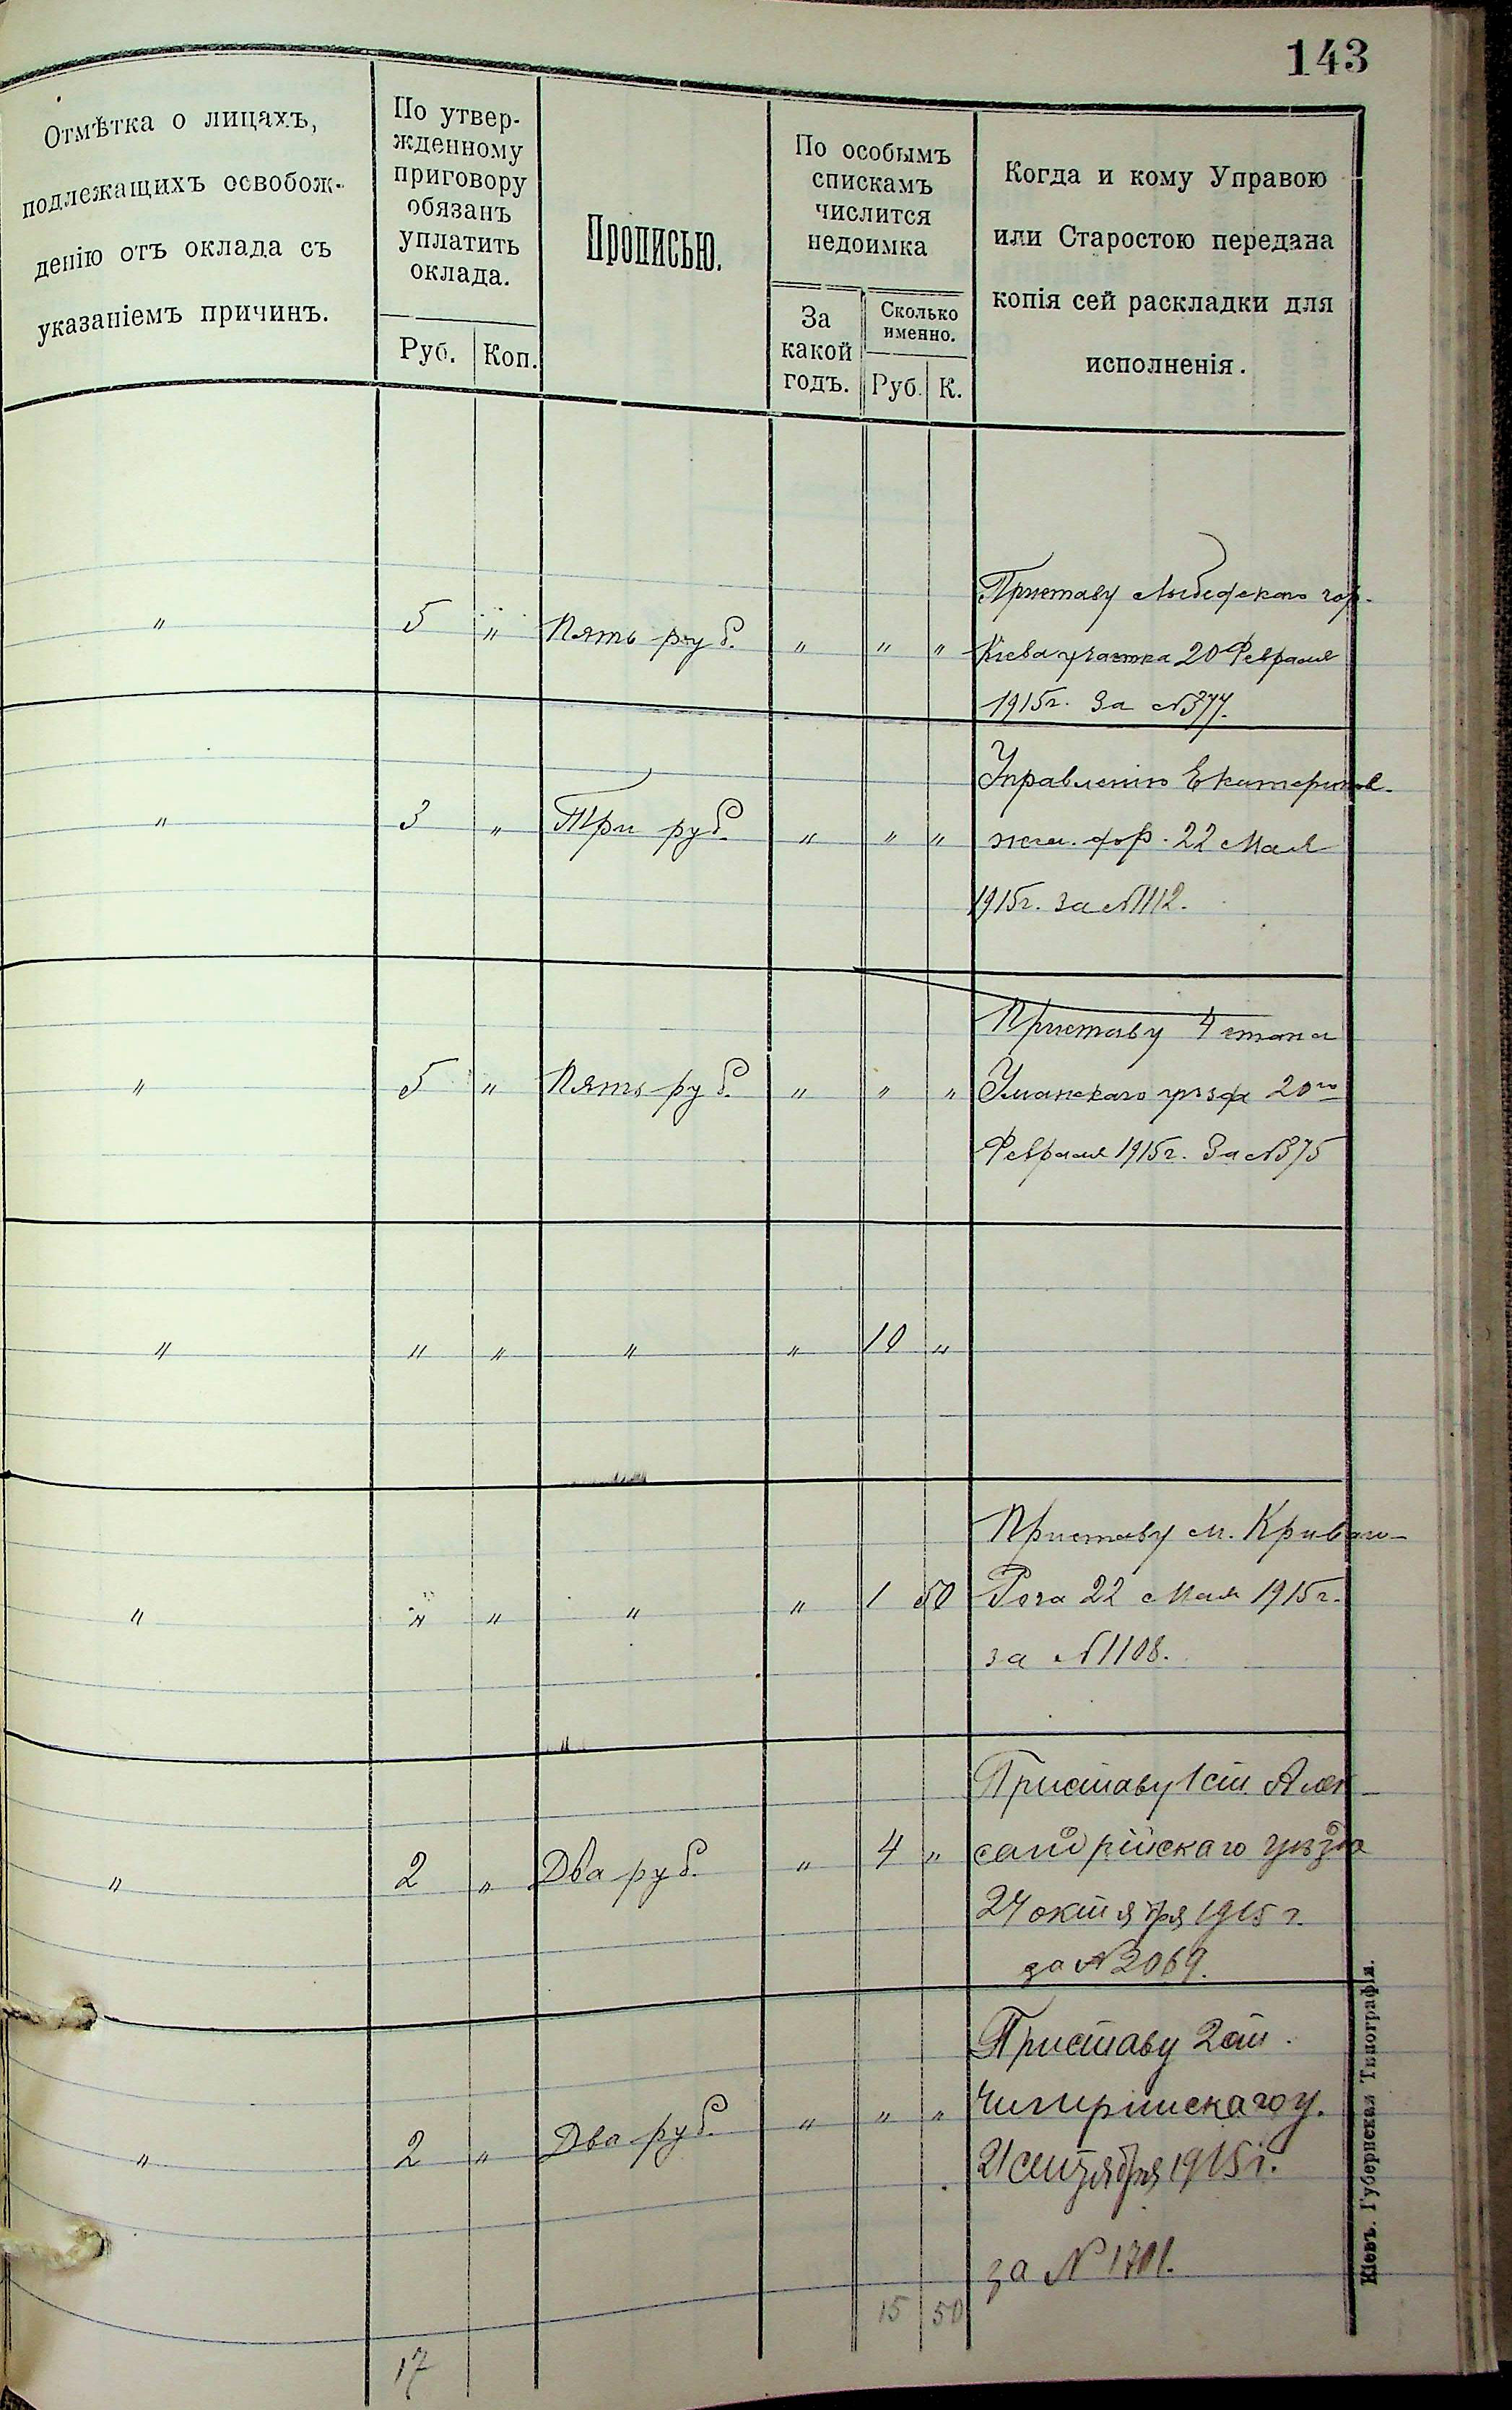 143
Отмѣтка о лицахъ,
подлежащихъ освобож-
денію отъ оклада съ
указаніемъ причинъ.
По утвер-
жденному
приговору
обязанъ
уплатить
оклада.
Руб. Коп.
Прописью.
По особымъ
спискамъ
числится
недоимка
За
какой
годъ.
Сколько
именно.
Руб. К.
Когда и кому Управою
или Старостою передана
копія сей раскладки для
исполненія.
" 5 " Пять руб. " " "
Приставу Лыбедскаго гор.
Кіева участка 20 Февраля
1915г. За №377.
" 3 " Три руб. " " "
Управленію Екатеринов.
жел. дор. 22 Мая
1915г. за №1112.
" 5 " Пять руб. " " "
Приставу 4 стана
Уманскаго уѣзда 20го
Февраля 1915г. За №375
" " " " " 10 "
" " " " " 1 50
Приставу м. Криваго-
Рога 22 Мая 1915г.
за №1108.
" 2 " Два руб. " 4 "
Приставу 1 ст. Алек-
сандрійскаго уѣзда
24 октября 1915 г.
за №2069.
" 2 " Два руб. " " "
Приставу 2 ст.
Чигиринскаго у.
21 сентября 1915г.
за №1701.
17 15 50
Кіевъ. Губернская Типографія.